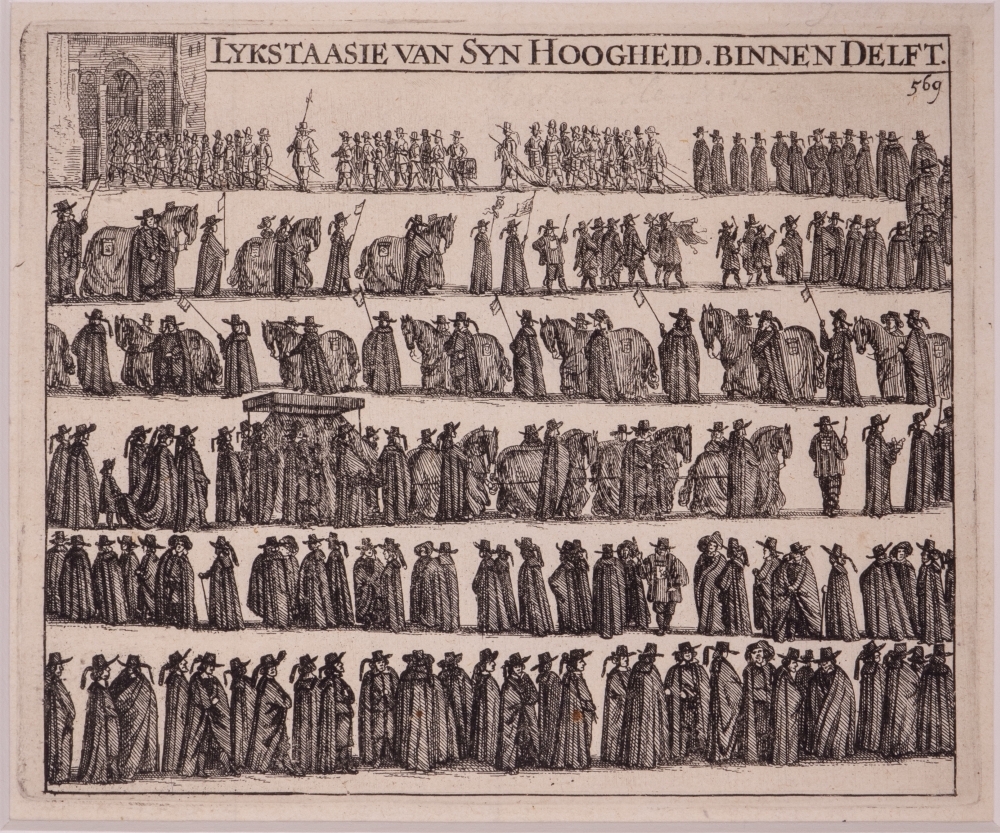 LYKSTAASIE VAN SYN HOOGHEID. BINNEN DELFT.
569